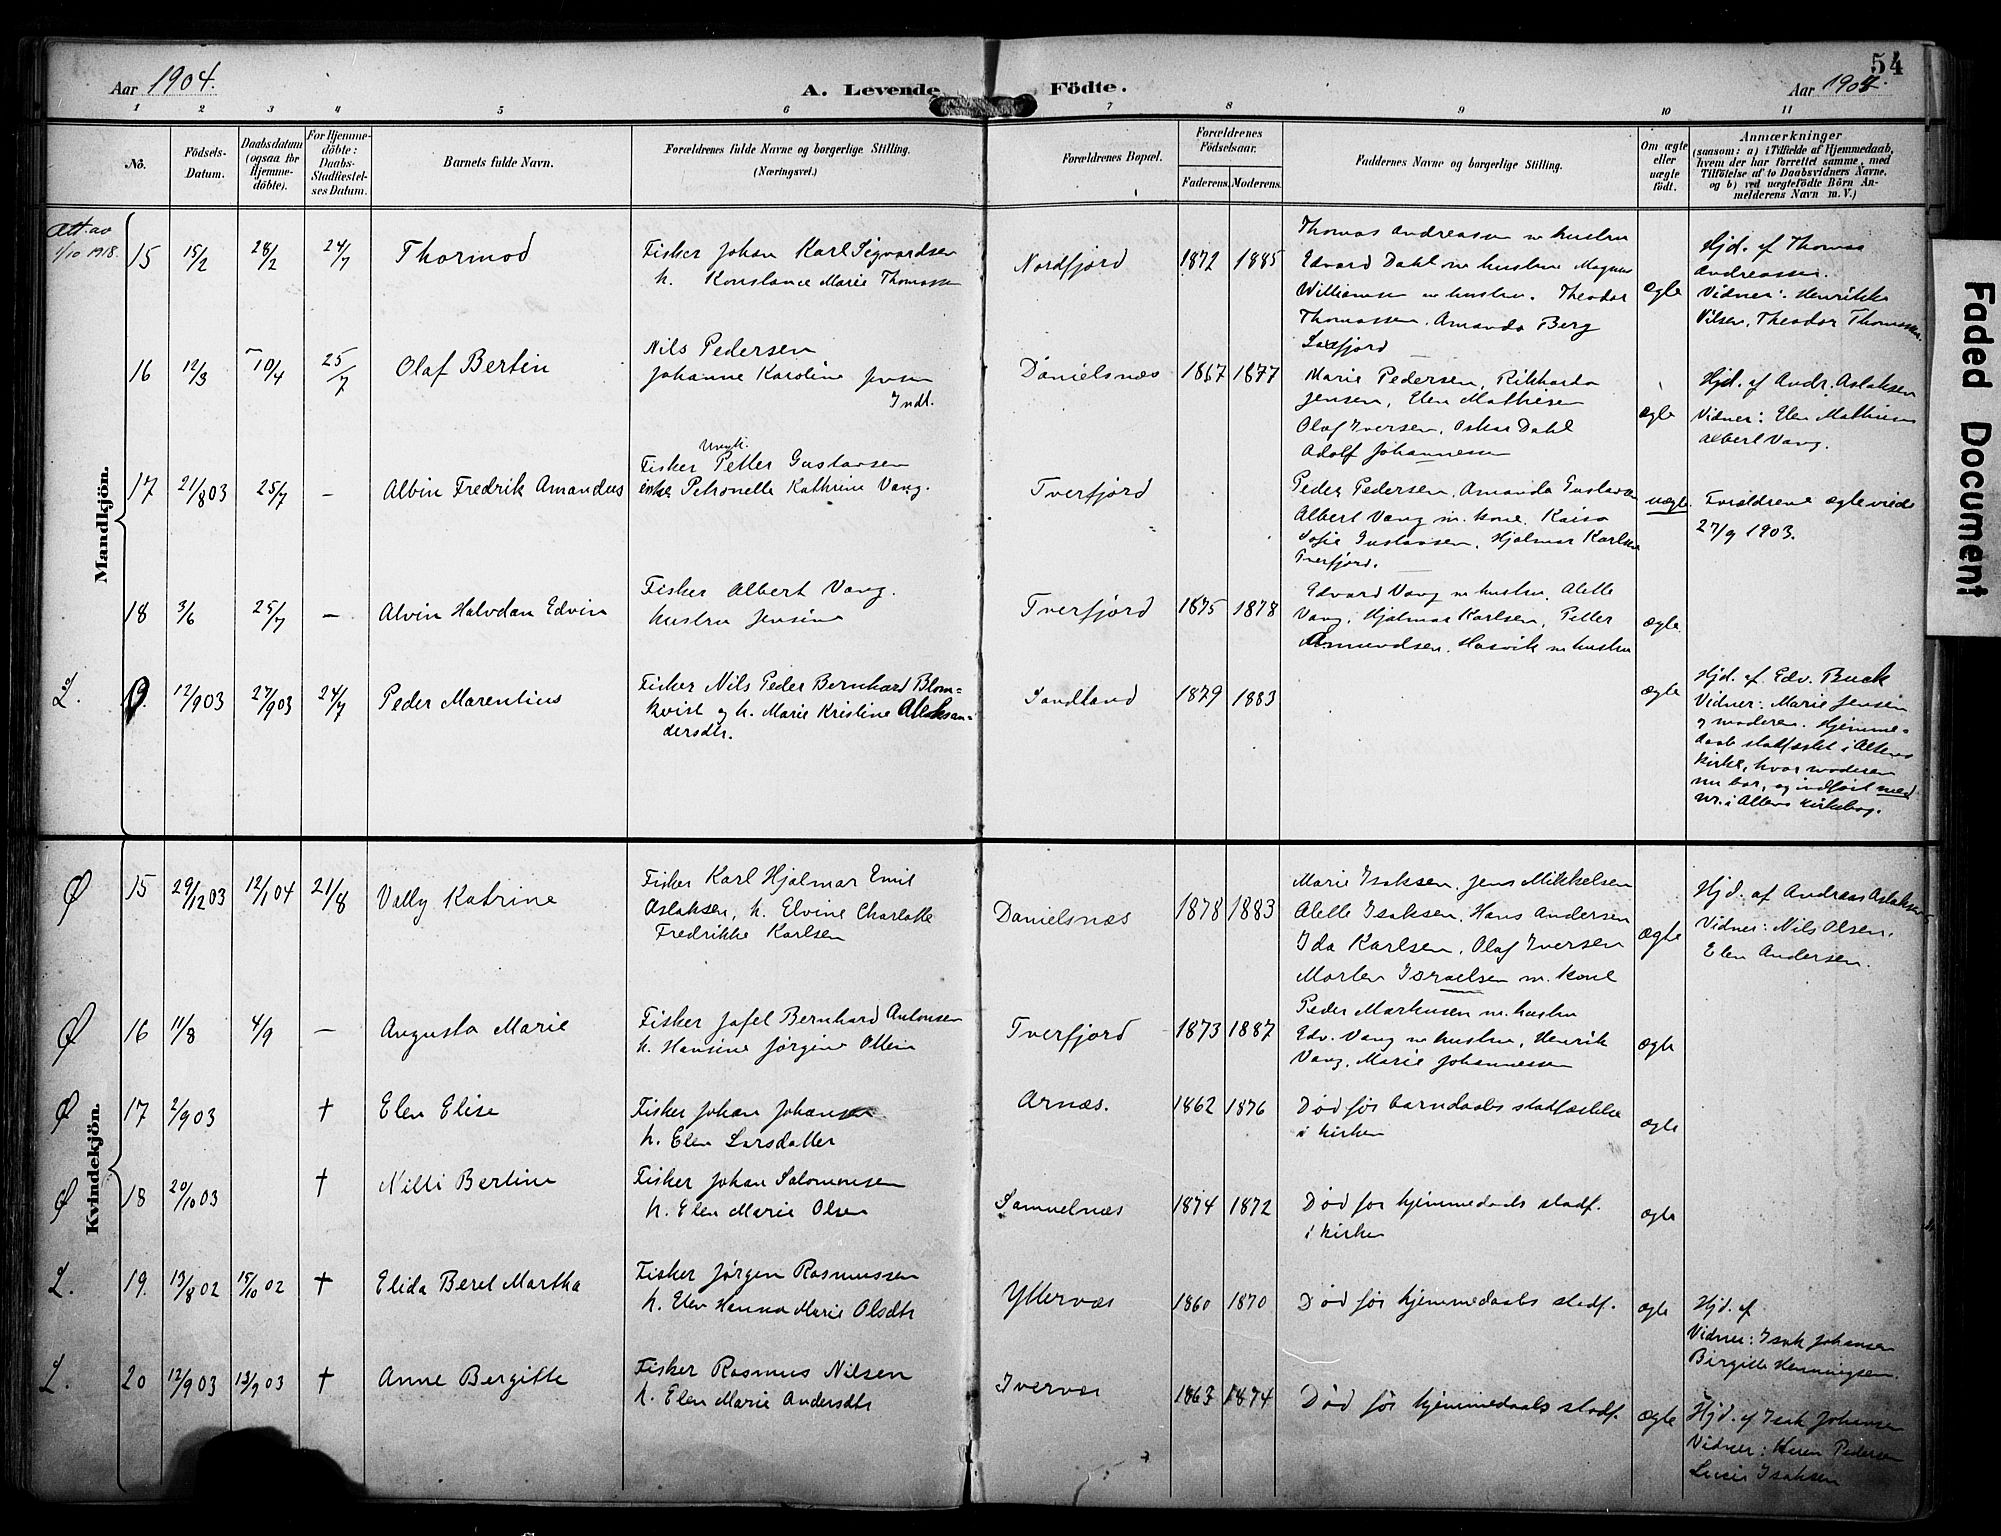 54
Aar 1904.
A. Levende Födte.
Aar 1904.
1 2 3 4 5 6 7 8 9 10 11
No.
Födsels-Datum.
Daabsdatum (ogsaa for Hjemme-döbte).
For Hjemme-döbte: Daabs-Stadfæstel-ses Datum.
Barnets fulde Navn.
Forældrenes fulde Navne og borgerlige Stilling.
(Næringsvei.)
Forældrenes Bopæl.
Forældrenes Födselsaar.
Faderens. Moderens.
Faddernes Navne og borgerlige Stilling.
Om ægte eller uægte födt.
Anmærkninger
(saasom: a) i Tilfælde af Hjemmedaab,
hvem der har forrettet samme, med
Tilföielse af to Daabsvidners Navne.
og b) ved uægtefödte Börn An-
melderens Navn m. V.)
Mandkjön.
Att. av
1/10 1918.
15 15/2 28/2 24/7 Thormod
Fisker Johan Karl Sigvardsen
h. Konstance Marie Thomassen
Nordfjord 1872 1885
Thomas Andreassen m hustru
Edvard Dahl m hustru Magnus
Williamsen m hustru. Theodor
Thomassen. Amanda Berg
ægte
Hjd. af Thomas
Andreassen.
Vidner: Henrikke
Nilsen, Theodor Thomassen.
16 12/3 10/4 25/7 Olaf Bertin
Nils Pedersen
Johanne Karoline Jensen
Indt.
Danielsnæs 1867 1877
Marie Pedersen, Rikharda
Jensen, Elen Mathisen
Olaf Iversen, Oskar Dahl
Adolf Johannessen
ægte
Hjd. af Andr. Aslaksen
Vidner: Elen Mathisen
Albert Vang.
17 21/8 03 25/7 – Albin Fredrik Amandus
Ungk.
Fisker Petter Gustavsen
Petronelle Kathrine Vang.
Tverfjord
Peder Pedersen, Amanda Gustavsen
Albert Vang m. kone. Kaisa
Sofie Gustavsen, Hjalmar Karlsen
Tverfjord.
uægte.
Forældrene ægteviede
27/9 1903.
18 3/6 25/7 – Alvin Halvdan Edvin
Fisker Albert Vang.
Hustru Jensine
Tverfjord 1875 1878
Edvard Vang m hustru. Alette
Vang, Hjalmar Karlsen, Petter
Amundsen. Hasvik m hustru
ægte
L. 19. 12/9 03 27/9 03 24/7 Peder Marentius
Fisker Nils Peder Bernhard Blom-
kvist og h. Marie Kristine Aleksan-
dersdtr.
Sandland 1879 1883
ægte
Hjd. af. Edv. Buck
Vidner: Marie Jensen
og moderen. Hjemme-
daab stadfæstet i Altens
kirke, hvor moderen
nu bor, og indført med
nr. i Altens kirkebog.
Kvindekjön.
Ø 15 29/12 03 12/1 04 21/8 Vally Katrine
Fisker Karl Hjalmar Emil
Aslaksen, h. Elvine Charlotte
Fredrikke Karlsen
Danielsnæs 1878 1883
Marie Isaksen, Jens Mikkelsen
Alette Isaksen, Hans Andersen
Ida Karlsen, Olaf Iversen
Morten Israelsen m. kone
ægte
Hjd. af Andreas Aslaksen
Vidner: Nils Olsen,
Elen Andersen.
Ø 16 11/8 4/9 – Augusta Marie
Fisker Jafet Bernhard Antonsen
h. Hansine Jørgine Ottine
Tverfjord 1873 1887
Peder Markusen m. hustru
Edv. Vang m hustru, Henrik
Vang, Marie Johannessen
ægte
Ø 17 2/9 03 † Elen Elise
Fisker Johan Johansen
h. Elen Larsdatter
Arnæs. 1862 1876
Død før barndaabs stadfæstelse
i kirken
ægte
Ø 18 20/10 03 † Nilli Bertine
Fisker Johan Salomonsen
h. Elen Marie Olsen
Samuelnæs 1874 1872
Død før hjemmedaabs stadf.
i kirken
ægte
L. 19. 13/8 02 15/10 02 † Elida Beret Martha
Fisker Jørgen Rasmussen
h. Elen Hanna Marie Olsdtr
Yttervær 1860 1870
Død før hjemmedaabs stadf.
ægte
Hjd. af
Vidner: Isak Johansen
Birgitte Henningsen.
L. 20 12/9 03 13/9 03 † Anne Bergitte
Fisker Rasmus Nilsen
h. Elen Marie Andersdtr
Ivervær 1863 1874
Død før hjemmedaabs stadf.
ægte
Hjd. af Isak Johansen
Vidner: Karen Pedersen
Lusie Isaksen
Faded Document